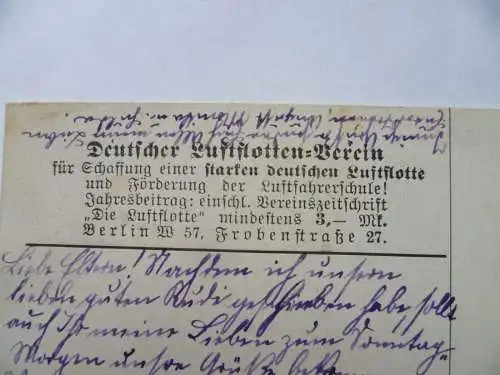 Deutscher Luftflotten-Verein
für Schaffung einer starken deutschen Luftflotte
und Förderung der Luftfahrerschule!
Jahresbeitrag: einschl. Vereinszeitschrift
„Die Luftflotte" mindestens 3,— Mk.
Berlin W 57, Frobenstraße 27.
Liebe Eltern! Nachdem ich unsern
lieben guten Rudi geschrieben habe, sollt
auch Ihr meine Lieben zum Sonntag-
Morgen unsre Grüße